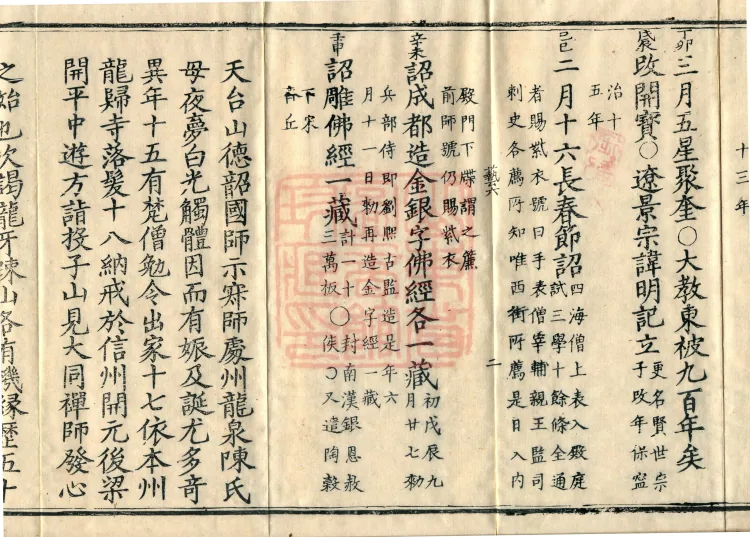 十三年
丁卯三月五星聚奎○大教東被九百年矣
改開寶○遼景宗諱明記立更名賢世宗子改年保寧
治十五年
己巳二月十六長春節詔四海僧上表入殿庭試三學十餘條全通
者賜紫衣號曰手表僧宰輔親王監司
刺史各薦所知唯西街所薦是日入内
藝六 二
殿門下牒謂之簾
前師號仍賜紫衣
辛未詔成都造金銀字佛經各一藏初戊辰九月廿七勅
兵部侍郎劉熙古監造是年六
月十一日勅再造金字經一藏
詔雕佛經一藏計一十三萬板○封南漢銀恩赦侯○又遣陶穀
下宋齊丘
天台山德韶國師示寂師處州龍泉陳氏
母夜夢白光觸體因而有娠及誕尤多奇
異年十五有梵僧勉令出家十七依本州
龍歸寺落髮十八納戒於信州開元後梁
開平中遊方詣投子山見大同禪師發心
之始也次謁龍牙踈山各有機緣歷五十